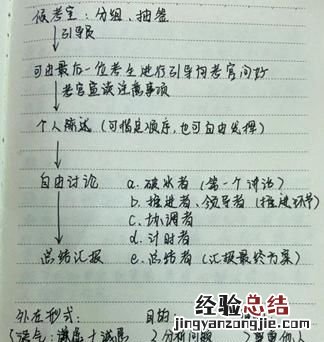 候考室：分组、抽签
引导员
可由最后一位考生进行引导向考官问好
考官宣读注意事项
个人陈述（可指定顺序，也可自由发挥）
自由讨论 a. 破冰者（第一个讲话）
b. 推进者、领导者（推进环节）
c. 协调者
d. 计时者
总结汇报 e. 总结者（汇报最终方案）
外在形式： 目的
语气：谦虚+诚恳 分析问题 尊重他人
经验总结
www.jiangyanzhuangshi.com